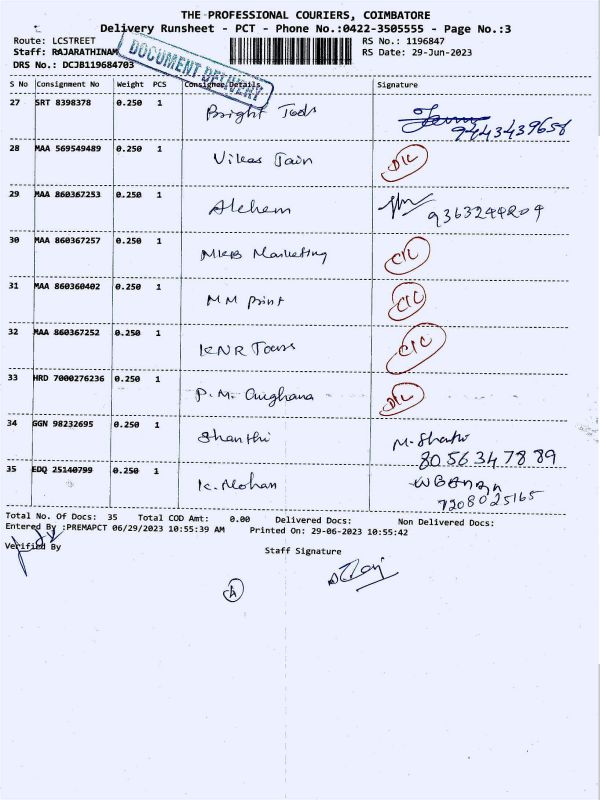 THE PROFESSIONAL COURIERS, COIMBATORE
Delivery Runsheet - PCT - Phone No.:0422-3505555 - Page No.:3
Route: LCSTREET RS No.: 1196847
Staff: RAJARATHINAM RS Date: 29-Jun-2023
DRS No.: DCJB119684703
DOCUMENT DELIVERY
S No Consignment No Weight PCS Consignee Details Signature
27 SRT 8398378 0.250 1 Bright Tools 9443439656
28 MAA 569549489 0.250 1 Vikas Jain D/L
29 MAA 860367253 0.250 1 Alchem 9363244204
30 MAA 860367257 0.250 1 MKB Marketing C/C
31 MAA 860360402 0.250 1 MM print C/C
32 MAA 860367252 0.250 1 KNR Tours C/C
33 HRD 7000276236 0.250 1 P.M. D/L
34 GGN 98232695 0.250 1 Shanthi M. Shanthi
8056347889
35 EDQ 25140799 0.250 1 K. Mohan
7208025165
Total No. Of Docs: 35 Total COD Amt: 0.00 Delivered Docs: Non Delivered Docs:
Entered By :PREMAPCT 06/29/2023 10:55:39 AM Printed On: 29-06-2023 10:55:42
Verified By Staff Signature